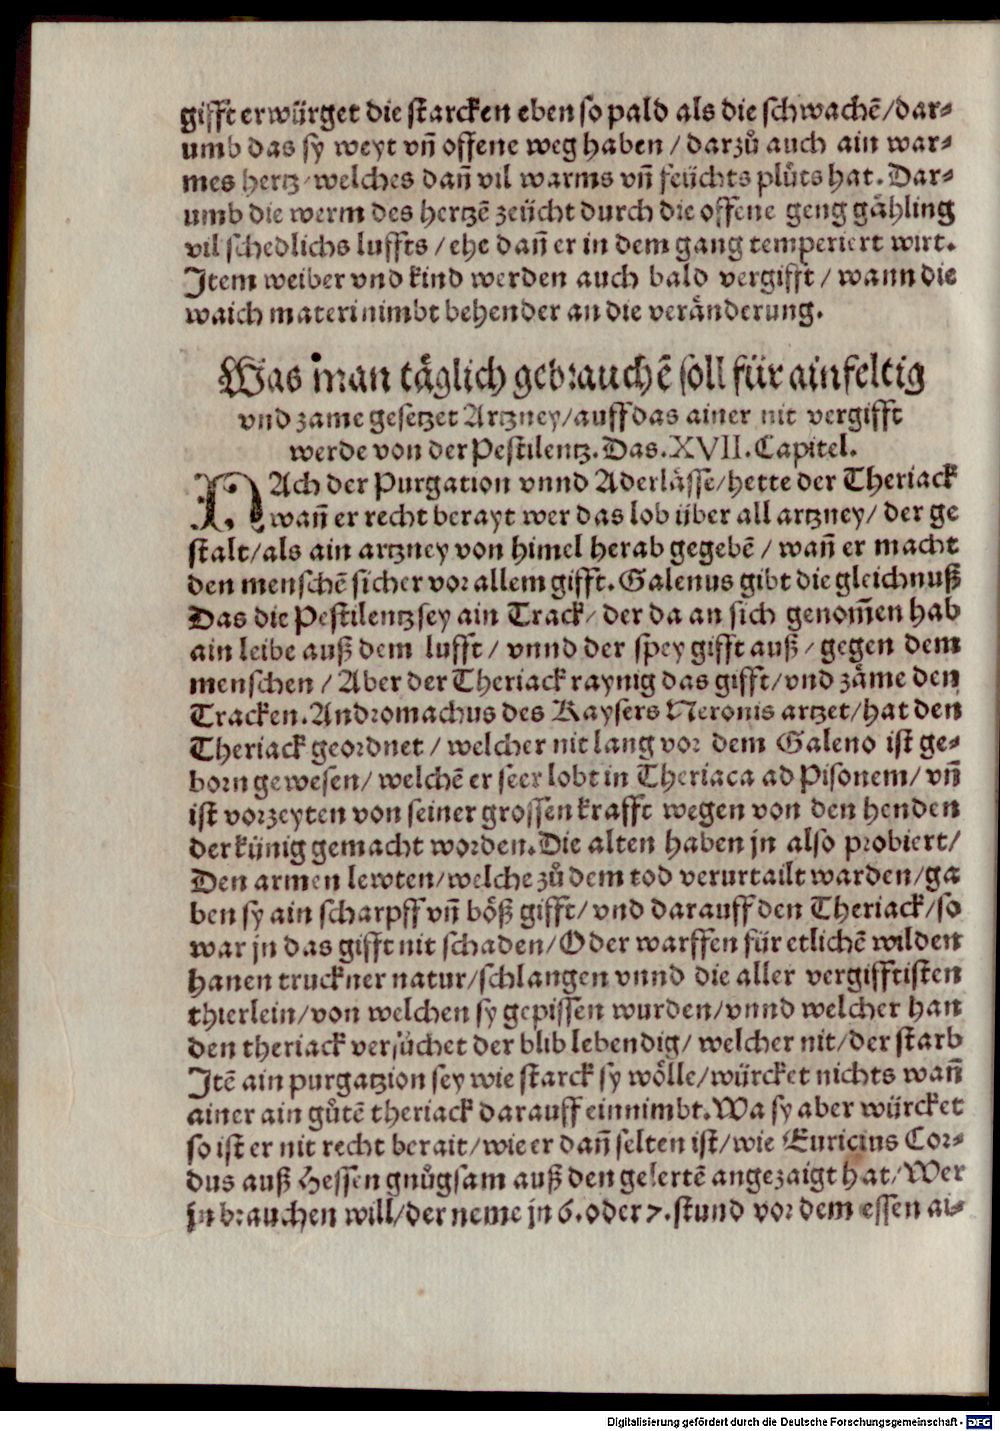 gifft erwürget die starcken eben so pald als die schwachẽ/dar⸗
umb das sy weyt vñ offene weg haben / darzů auch ain war⸗
mes hertz/welches dañ vil warms vñ feüchts plůts hat. Dar⸗
umb die werm des hertzẽ zeücht durch die offene geng gähling
vil schedlichs luffts / ehe dañ er in dem gang temperiert wirt.
Item weiber vnd kind werden auch bald vergifft / wann die
waich materi nimbt behender an die veränderung.
Was man täglich gebrauchẽ soll für ainfeltig
vnd zame gesetzet Artzney/auff das ainer nit vergifft
werde von der Pestilentz. Das. XVII. Capitel.
NAch der Purgation vnnd Aderlässe/hette der Theriack
wañ er recht berayt wer das lob über all artzney/ der ge
stalt/als ain artzney von himel herab gegebẽ / wañ er macht
den menschẽ sicher vor allem gifft. Galenus gibt die gleichnuß
Das die Pestilentz sey ain Track/ der da an sich genom̃en hab
ain leibe auß dem lufft / vnnd der spey gifft auß / gegen dem
menschen / Aber der Theriack raynig das gifft/vnd zäme den
Tracken. Andromachus des Kaysers Neronis artzet/hat den
Theriack geordnet / welcher nit lang vor dem Galeno ist ge⸗
born gewesen/ welchẽ er seer lobt in Theriaca ad Pisonem/ vñ
ist vorzeyten von seiner grossen krafft wegen von den henden
der künig gemacht worden. Die alten haben jn also probiert/
Den armen lewten/welche zů dem tod verurtailt warden/ga
ben sy ain scharpff vñ böß gifft/ vnd darauff den Theriack/so
war jn das gifft nit schaden/Oder warffen für etlichẽ wilden
hanen truckner natur/schlangen vnnd die aller vergifftisten
thierlein/von welchen sy gepissen wurden/vnnd welcher han
den theriack versůchet der blib lebendig/ welcher nit/der starb
Itẽ ain purgatzion sey wie starck sy wölle/würcket nichts wañ
ainer ain gůtẽ theriack darauff einnimbt. Wa sy aber würcket
so ist er nit recht berait/wie er dañ selten ist/wie Euricius Cor⸗
dus auß Hessen gnůgsam auß den gelertẽ angezaigt hat/Wer
jn brauchen will/der neme jn 6. oder 7. stund vor dem essen ai⸗
Digitalisierung gefördert durch die Deutsche Forschungsgemeinschaft - DFG